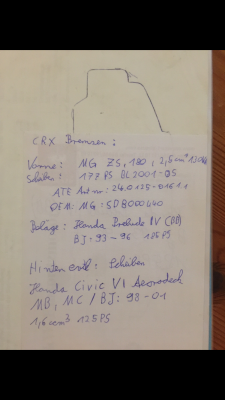 CRX Bremsen:
Vorne: MG ZS, 180, 2,5 cm³ 130KW
Scheiben: 177 PS BJ 2001-05
ATE Art nr: 24.0125-0161.1
OEM: MG: SDB000440
Beläge: Honda Prelude IV (BB)
BJ: 93-96 185PS
Hinten evtl: Scheiben
Honda Civic VI Aerodeck
MB, MC / BJ: 98-01
1,6 cm³ 125PS